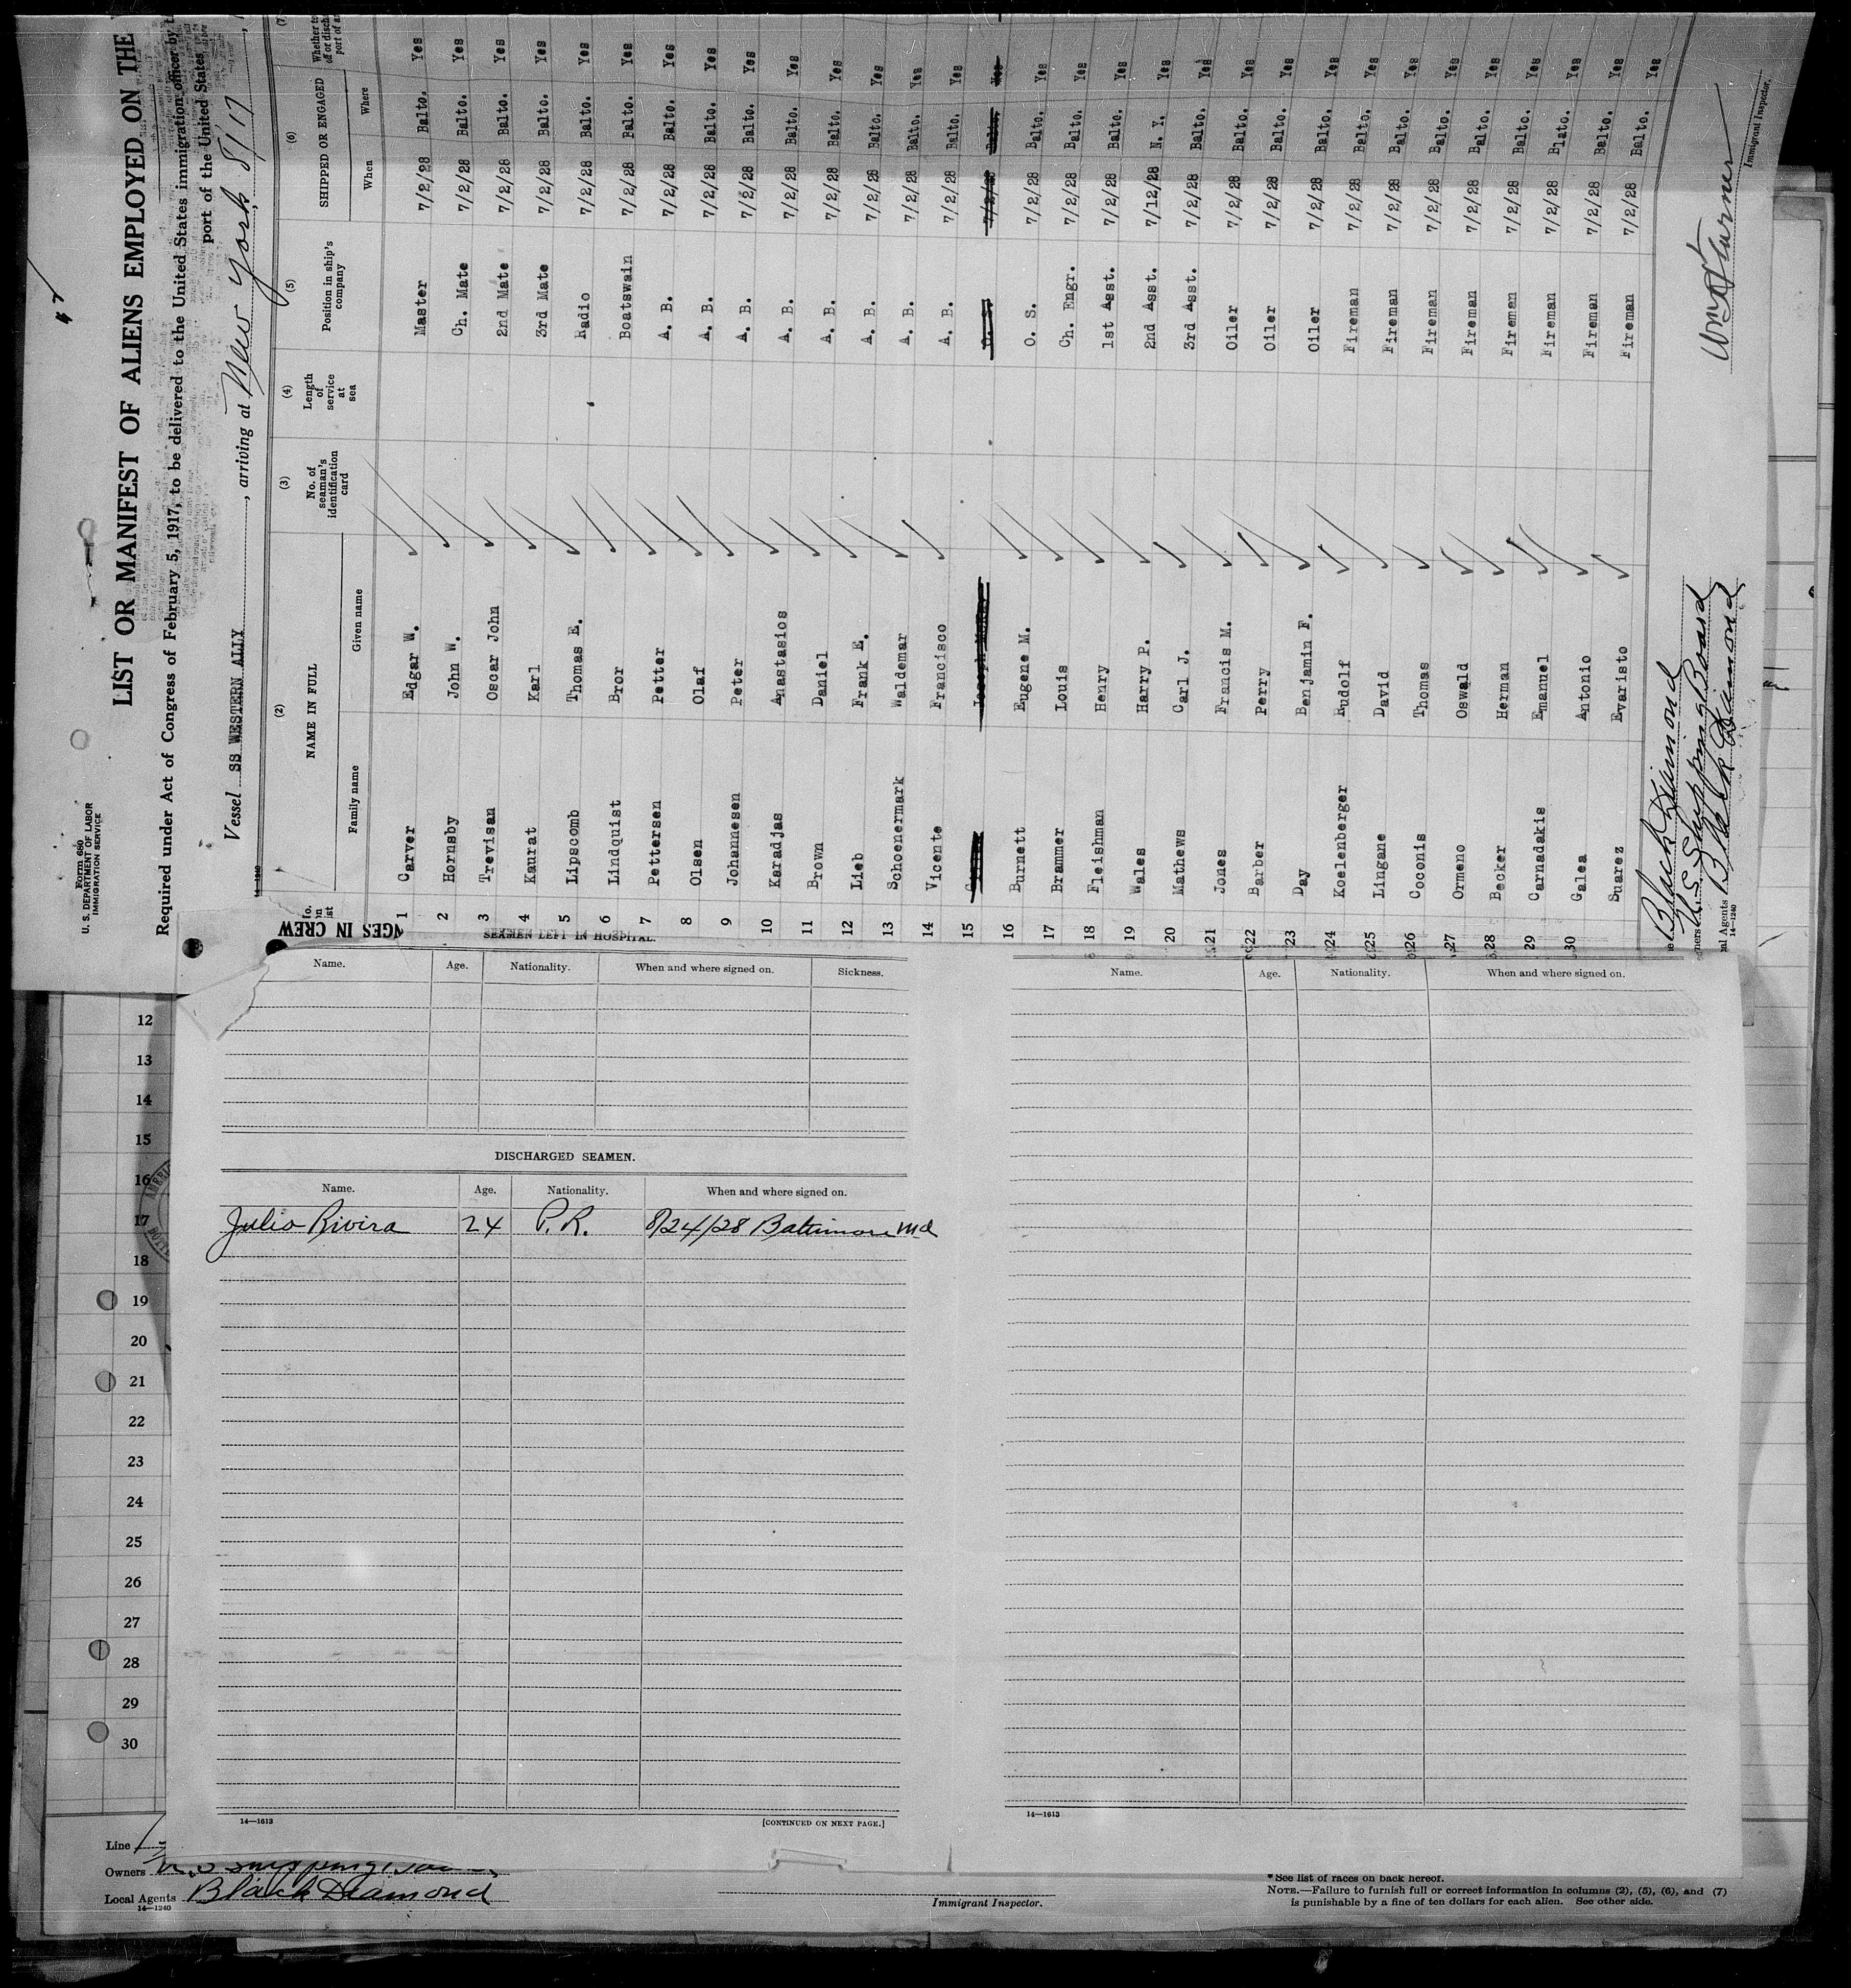 Form 680
U. S. DEPARTMENT OF LABOR
IMMIGRATION SERVICE
LIST OR MANIFEST OF ALIENS EMPLOYED ON THE
Required under Act of Congress of February 5, 1917, to be delivered to the United States immigration officer by
port of the United States
Vessel SS WESTERN ALLY, arriving at New York, 8/17
(2) (3) (4) (5) (6) (7)
NAME IN FULL No. of seaman's identification card Length of service at sea Position in ship's company SHIPPED OR ENGAGED
Family name Given name When Where
1 Carver Edgar W. Master 7/2/28 Balto. Yes
2 Hornsby John W. Ch. Mate 7/2/28 Balto. Yes
3 Trevisan Oscar John 2nd Mate 7/2/28 Balto. Yes
4 Kaurat Karl 3rd Mate 7/2/28 Balto. Yes
5 Lipscomb Thomas E. Radio 7/2/28 Balto. Yes
6 Lindquist Bror Boatswain 7/2/28 Balto. Yes
7 Pettersen Petter A. B. 7/2/28 Balto. Yes
8 Olsen Olaf A. B. 7/2/28 Balto. Yes
9 Johannesen Peter A. B. 7/2/28 Balto. Yes
10 Karadjas Anastasios A. B. 7/2/28 Balto. Yes
11 Brown Daniel A. B. 7/2/28 Balto. Yes
12 Lieb Frank E. A. B. 7/2/28 Balto. Yes
13 Schoenermark Waldemar A. B. 7/2/28 Balto. Yes
14 Vicente Francisco A. B. 7/2/28 Balto. Yes
15 Joseph O. S. 7/2/28 Balto. Yes
16 Burnett Eugene M. O. S. 7/2/28 Balto. Yes
17 Brammer Louis Ch. Engr. 7/2/28 Balto. Yes
18 Fleishman Henry 1st Asst. 7/2/28 Balto. Yes
19 Wales Harry P. 2nd Asst. 7/12/28 N. Y. Yes
20 Mathews Carl J. 3rd Asst. 7/2/28 Balto. Yes
21 Jones Francis M. Oiler 7/2/28 Balto. Yes
22 Barber Perry Oiler 7/2/28 Balto. Yes
23 Day Benjamin F. Oiler 7/2/28 Balto. Yes
24 Koelenberger Rudolf Fireman 7/2/28 Balto. Yes
25 Lingane David Fireman 7/2/28 Balto. Yes
26 Coconis Thomas Fireman 7/2/28 Balto. Yes
27 Ormeno Oswald Fireman 7/2/28 Balto. Yes
28 Becker Herman Fireman 7/2/28 Balto. Yes
29 Carnadakis Emanuel Fireman 7/2/28 Blato. Yes
30 Galea Antonio Fireman 7/2/28 Balto. Yes
Suarez Evaristo Fireman 7/2/28 Balto. Yes
Black Diamond
U.S. Shipping Board
Black Diamond
14—1240
Immigrant Inspector.
NGES IN CREW
SEAMEN LEFT IN HOSPITAL.
Name. Age. Nationality. When and where signed on. Sickness.
DISCHARGED SEAMEN.
Name. Age. Nationality. When and where signed on.
Julio Rivira 24 P. R. 8/24/28 Baltimore Md
14—1613 [CONTINUED ON NEXT PAGE.]
Name. Age. Nationality. When and where signed on.
14—1613
12
13
14
15
16
17
18
19
20
21
22
23
24
25
26
27
28
29
30
Line
Owners
Local Agents Black Diamond
14—1240
Immigrant Inspector.
* See list of races on back hereof.
NOTE.—Failure to furnish full or correct information in columns (2), (5), (6), and (7)
is punishable by a fine of ten dollars for each alien. See other side.